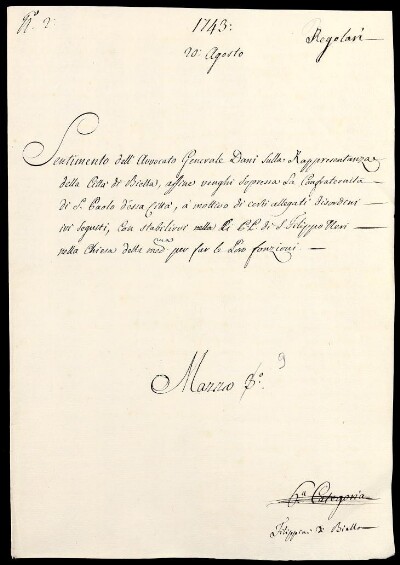 N.° 2.
1743:
20: Agosto
Regolari
Sentimento dell'Avvocato Generale Dani sulla Rappresentanza
della Città di Biella, affine venghi sopressa la Confraternità
di S. Paolo d'essa Città, à mottivo di certi allegati disordeni
ivi seguiti, con stabilirvi nella li P.P. di S. Filippo Neri
nella Chiesa della med.ma per far le loro fonzioni
Mazzo p.° 9
6.a Categoria
Filippini di Biella